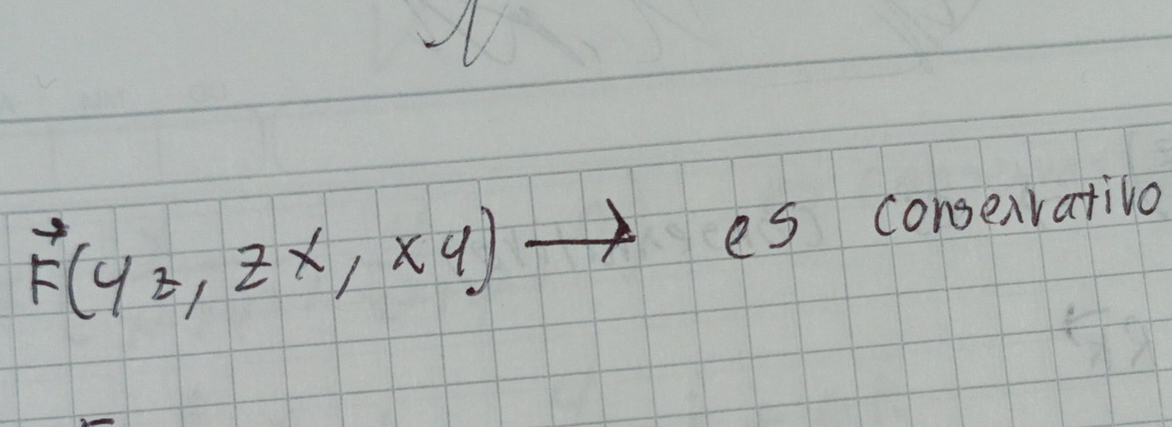 F⃗(yz, zx, xy) → es conservativo